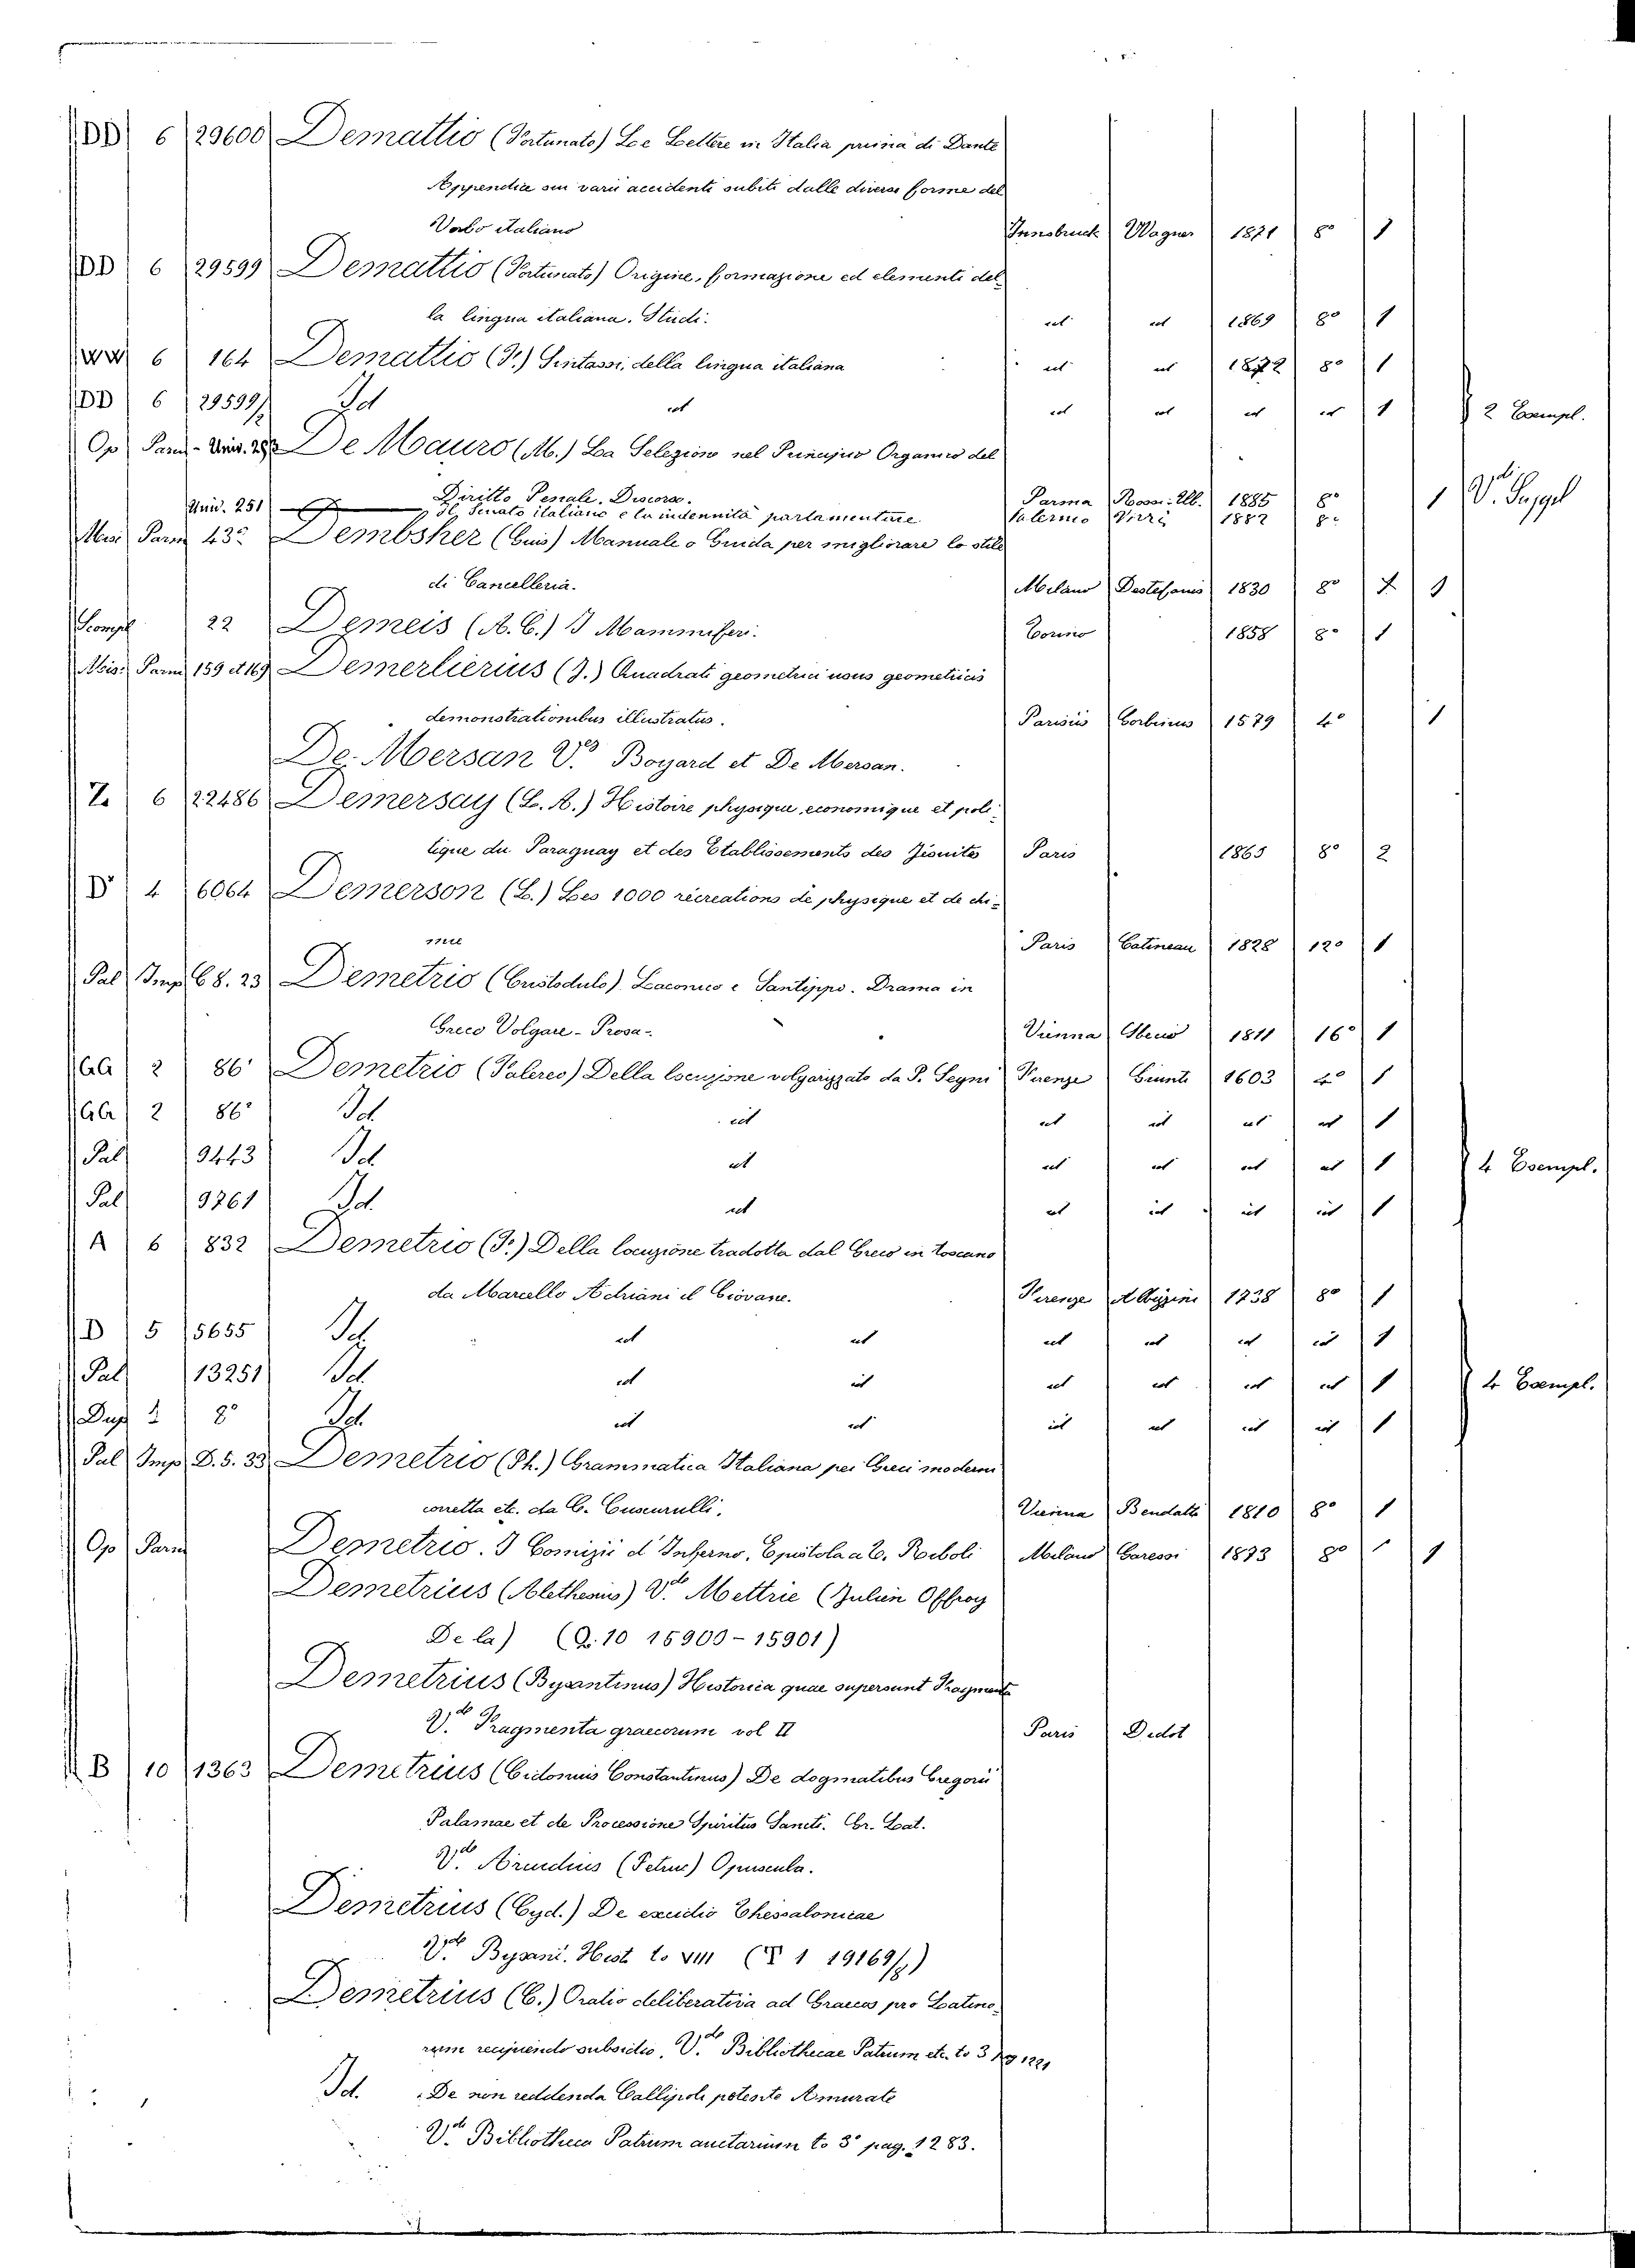 DD 6 29600 Demattio (Fortunato) Le Lettere in Italia prima di Dante
Appendice sui varii accidenti subiti dalle diverse forme del
Verbo italiano Innsbruck Wagner 1871 8º 1
DD 6 29599 Demattio (Fortunato) Origine, formazione ed elementi del-
la lingua italiana. Studi. id id 1869 8º 1
WW 6 164 Demattio (F.) Sintassi della lingua italiana id id 1872 8º 1
DD 6 29599/2 Id id id id id id 1 2 Esempl.
Op Parm - De Mauro (M.) La Selezione nel Principio Organico del
Diritto Penale. Discorso. Parma Rossi-Ub. 1885 8º 1 Vdi Suppl
Unid. 251 Il Senato italiano e la indennità parlamentare Palermo 1882 8º
Misc Parm 43º Dembsher (Guis) Manuale o Guida per migliorare lo stile
di Cancelleria. Milano Destefanis 1830 8º 1
Compl 22 Demeis (A. C.) I Mammiferi. Torino 1858 8º 1
Misc. Parm 159 et 169 Demerlierius (J.) Quadrati geometrici usus geometricis
demonstrationibus illustratus. Parisiis Corbinus 1579 4º 1
De Mersan V.es Boyard et De Mersan.
Z. 6 22486 Demersay (L. A.) Histoire physique, economique et poli-
tique du Paraguay et des Etablissements des Jésuites Paris 1865 8º 2
D 4 6064 Demerson (L.) Les 1000 récreations de physique et de chi-
mie Paris Catineau 1828 12º 1
Pal Imp 68. 23 Demetrio (Cristodulo) Laconico e Santippo. Drama in
Greco Volgare - Prosa - Vienna 1811 16º 1
GG 2 86 Demetrio (Falereo) Della locuzione volgarizzato da P. Segni Firenze Giunti 1603 4º 1
GG 2 86 Id id id id id id 1
Pal 9443 Id id id id id id 1 4 Esempl.
Pal 9761 Id id id id id id 1
A 6 832 Demetrio (F.) Della locuzione tradotta dal Greco in toscano
da Marcello Adriani il Giovane. Firenze Albizzini 1738 8º 1
D 5 5655 Id id id id id id id 1
Pal 13251 Id id id id id id id 1 4 Esempl.
Dup 2 8º Id id id id id id id 1
Pal Imp D. 5. 33 Demetrio (Th.) Grammatica Italiana pei Greci moderni
corretta etc. da C. Cuscurulli. Vienna Bendatti 1810 8º 1
Op Parm Demetrio. I Comizii d'Inferno, Epistola a C. Roboli Milano Caressi 1873 8º 1
Demetrius (Alethesius) V.de Mettrie (Julien Offroy
De la) (Q. 10 15900-15901)
Demetrius (Bysantinus) Historica quae supersunt Fragmenta
V.de Fragmenta graecorum vol II Paris Didot
B 10 1363 Demetrius (Cidonius Constantinus) De dogmatibus Gregorii
Palamae et de Processione Spiritus Sancti. Gr. Lat.
V.de Arcudius (Petrus) Opuscula.
Demetrius (Cyd.) De excidio Thessalonicae
V.de Bysant. Hist to VIII
Demetrius (C.) Oratio deliberativa ad Graecos pro Latino-
rum recipiendo subsidio. V.de Bibliothecae Patrum etc. to 3 pag 1221
Id. De non reddenda Callipoli petente Amurate
V.de Bibliotheca Patrum auctarium to 3º pag. 1283.